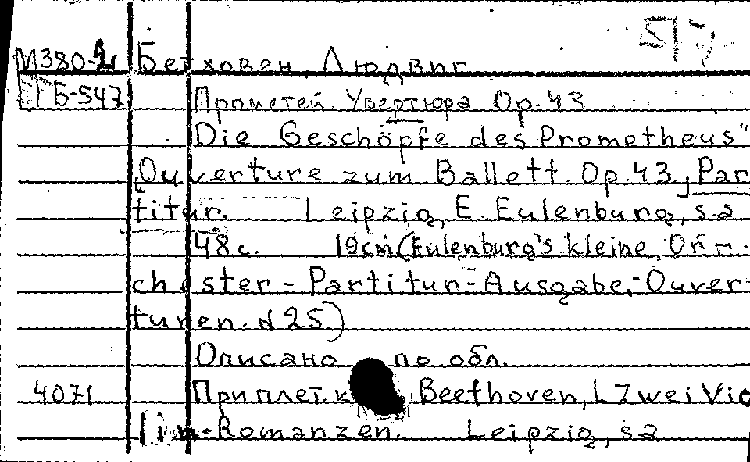 М380-2 Бетховен, Людвиг
Б-547 Прометей. Увертюра Op. 43
Die Geschöpfe des Prometheus"
Ouverture zum Ballett. Op. 43. [Par
titur.] Leipzig, E. Eulenburg, s.a
48 с. 19cm (Eulenburg's kleine Or-
chester-Partitur-Ausgabe,-Ouver-
turen. N 25)
Описано по обл.
4071 Приплет. к Beethoven, L Zwei Vio
lin-Romanzen. Leipzig, s.a